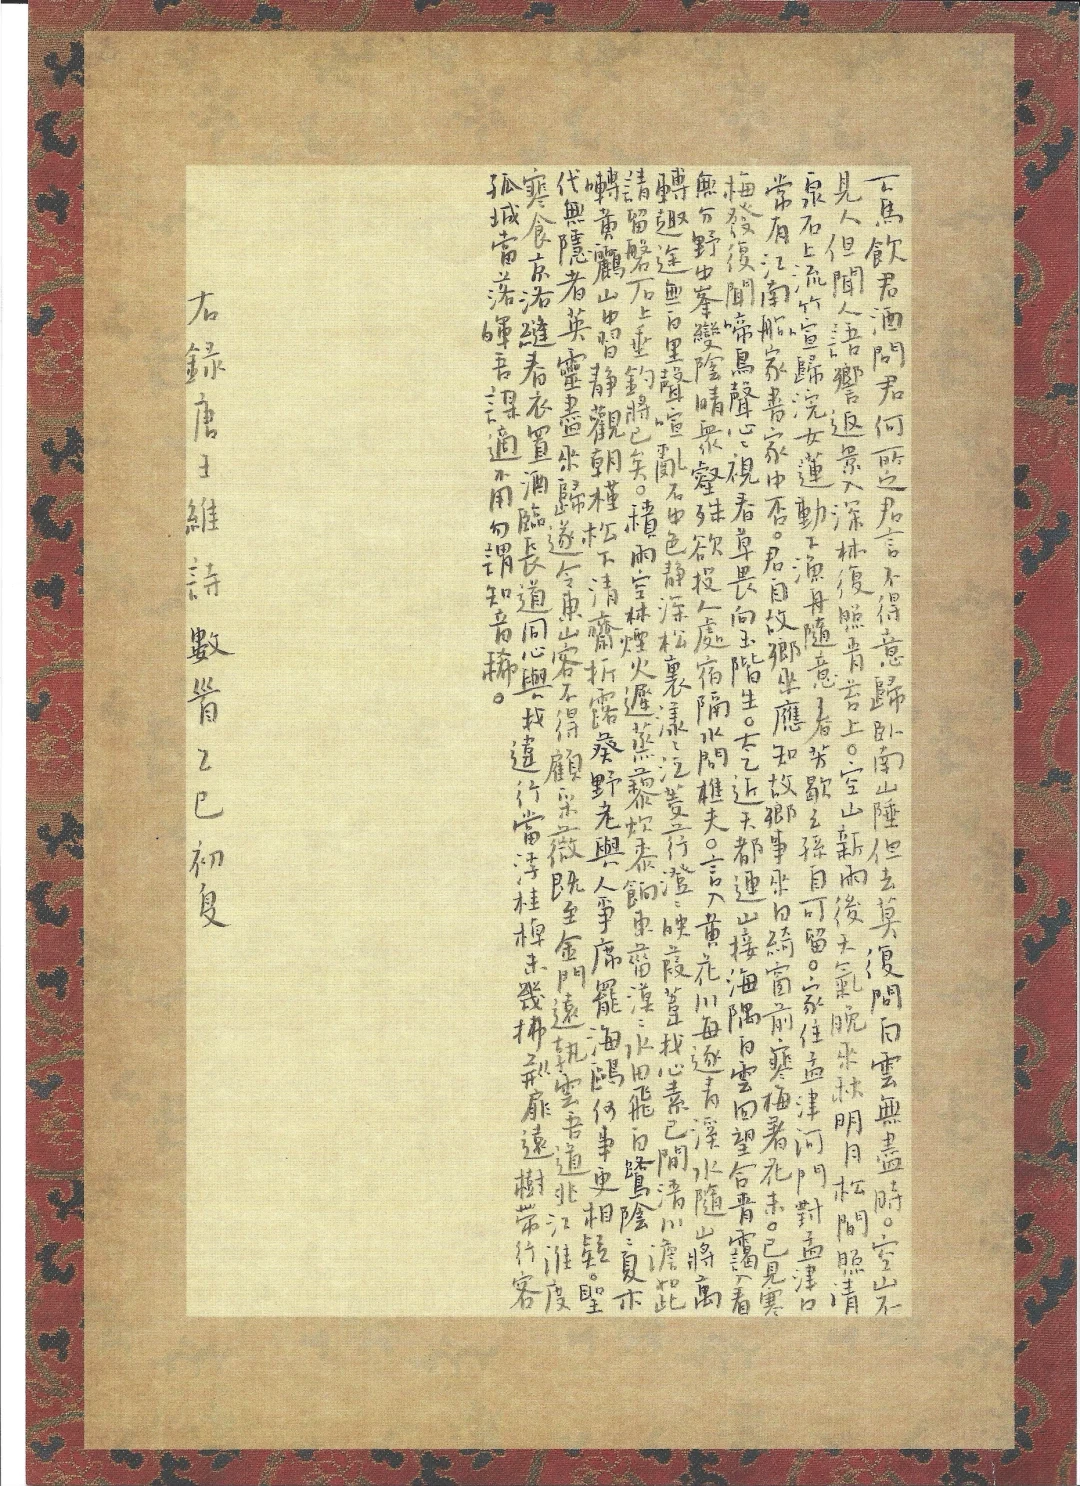 下馬飲君酒問君何所之君言不得意歸臥南山陲但去莫復問白雲無盡時。空山不
見人但聞人語響返景入深林復照青苔上。空山新雨後天氣晚來秋明月松間照清
泉石上流竹喧歸浣女蓮動下漁舟隨意春芳歇王孫自可留。家住孟津河門對孟津口
常有江南船寄書家中否。君自故鄉來應知故鄉事來日綺窗前寒梅著花未。已見寒
梅發復聞啼鳥聲心〻視春草畏向玉階生。太乙近天都連山接海隅白雲回望合青靄入看
無分野中峯變陰晴衆壑殊欲投人處宿隔水問樵夫。言入黃花川每逐青溪水隨山將萬
轉趣途無百里聲喧亂石中色靜深松裏漾〻泛菱荇澄〻映葭葦我心素已閒清川澹如此
請留磐石上垂釣將已矣。積雨空林煙火遲蒸藜炊黍餉東菑漠〻水田飛白鷺陰〻夏木
囀黃鸝山中習靜觀朝槿松下清齋折露葵野老與人爭席罷海鷗何事更相疑。聖
代無隱者英靈盡來歸遂令東山客不得顧采薇既至金門遠孰雲吾道非江淮度
寒食京洛縫春衣置酒臨長道同心與我違行當浮桂棹未幾拂荊扉遠樹帶行客
孤城當落暉吾謀適不用勿謂知音稀。
右錄唐王維詩數首乙巳初夏